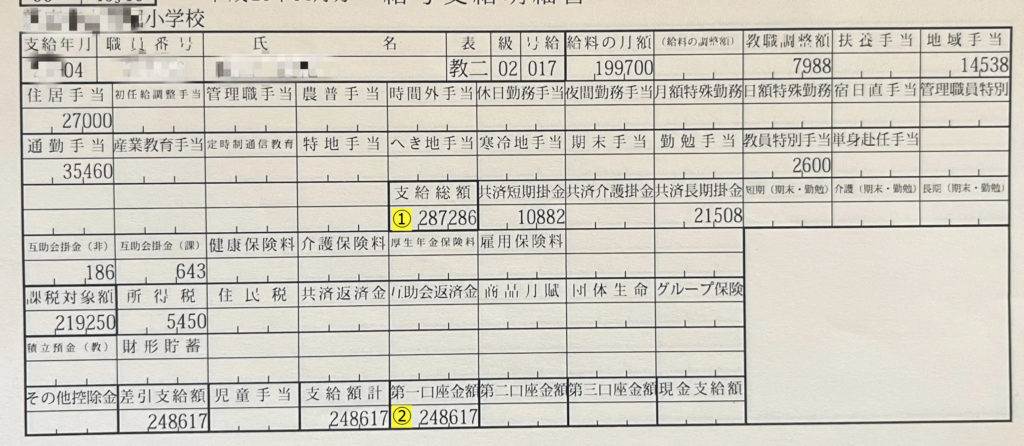 小学校
支給年月 職員番号 氏 名 表 級 号給 給料の月額 (給料の調整額) 教職調整額 扶養手当 地域手当
04 教二 02 017 199700 7988 14538
住居手当 初任給調整手当 管理職手当 農普手当 時間外手当 休日勤務手当 夜間勤務手当 月額特殊勤務 日額特殊勤務 宿日直手当 管理職員特別
27000
通勤手当 産業教育手当 定時制通信教育 特地手当 へき地手当 寒冷地手当 期末手当 勤勉手当 教員特別手当 単身赴任手当
35460 2600
支給総額 共済短期掛金 共済介護掛金 共済長期掛金 短期(期末・勤勉) 介護(期末・勤勉) 長期(期末・勤勉)
① 287286 10882 21508
互助会掛金(非) 互助会掛金(課) 健康保険料 介護保険料 厚生年金保険料 雇用保険料
186 643
課税対象額 所得税 住民税 共済返済金 互助会返済金 商品月賦 団体生命 グループ保険
219250 5450
積立預金(教) 財形貯蓄
その他控除金 差引支給額 児童手当 支給額計 第一口座金額 第二口座金額 第三口座金額 現金支給額
248617 248617 ② 248617